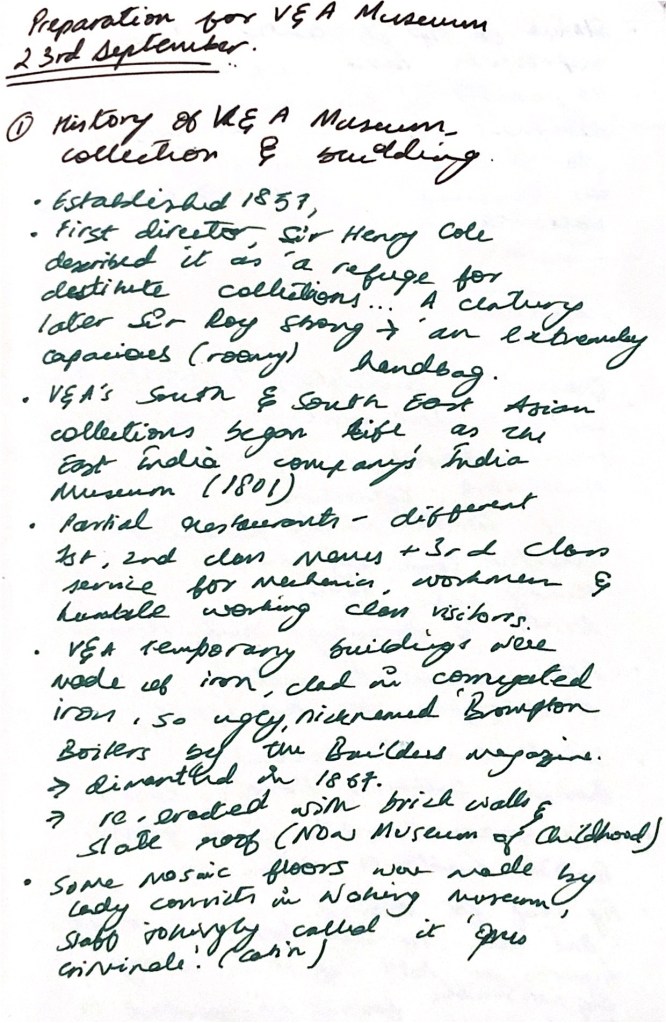 Preparation for V&A Museum
23rd September.
① History of V&A Museum,
collection & building.
• Established 1857,
• First director, Sir Henry Cole
described it as 'a refuge for
destitute collections... A century
later Sir Roy Strong → 'an extremely
capacious (roomy) handbag.
• V&A's South & South East Asian
collections began life as the
East India company's India
Museum (1801)
• Partial restaurants - different
1st, 2nd class menus + 3rd class
service for mechanics, workmen &
humble working class visitors.
• V&A temporary buildings were
made of iron, clad in corrugated
iron, so ugly, nicknamed 'Brompton
Boilers by the Builders magazine.
→ dimantled in 1867.
→ re-erected with brick walls &
slate roof (Now Museum of Childhood)
• Some mosaic floors were made by
lady convicts in Woking museum,
staff jokingly called it 'Opus
criminale'. (Latin)